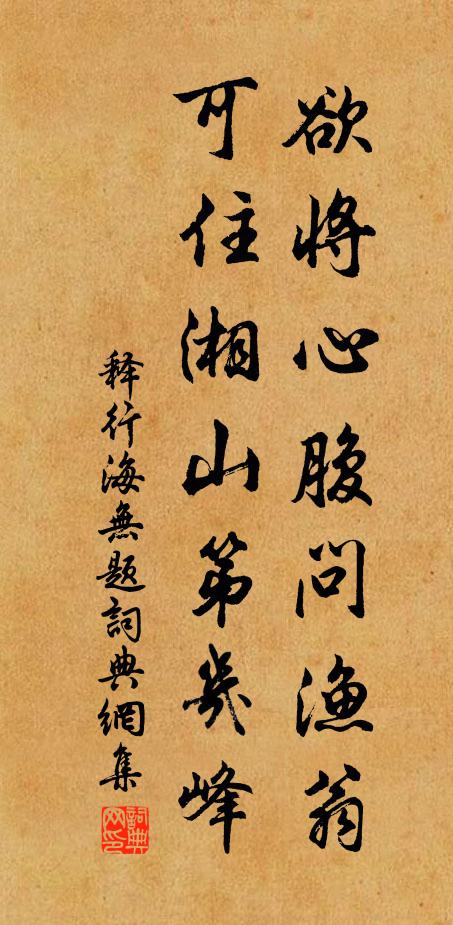 欲將心腹問漁翁
可住湘山第幾峰
释行海無題詞典網集
詞典
网印